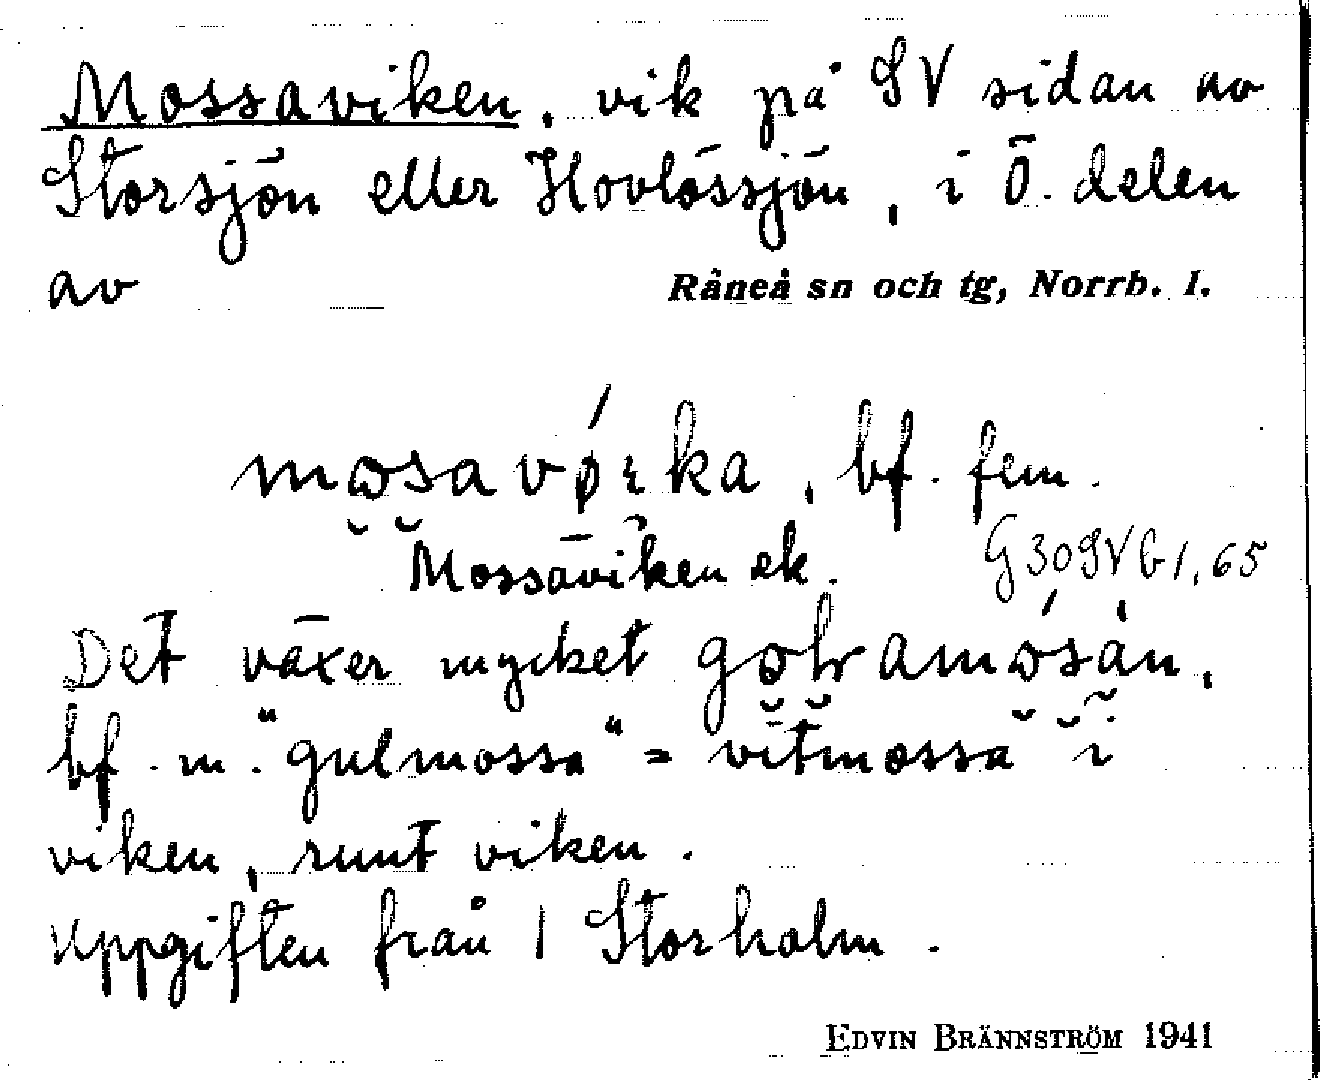 Mossaviken, vik på SV sidan av
Storsjön eller Hovlössjön, i Ö. delen
av Råneå sn och tg, Norrb. l.
bf. fem.
Mossaviken ek. G30SVb1,65
Det växer mycket
bf. m. "gulmossa" = vitmossa i
viken, runt viken.
Uppgiften från 1 Storholm.
EDVIN BRÄNNSTRÖM 1941